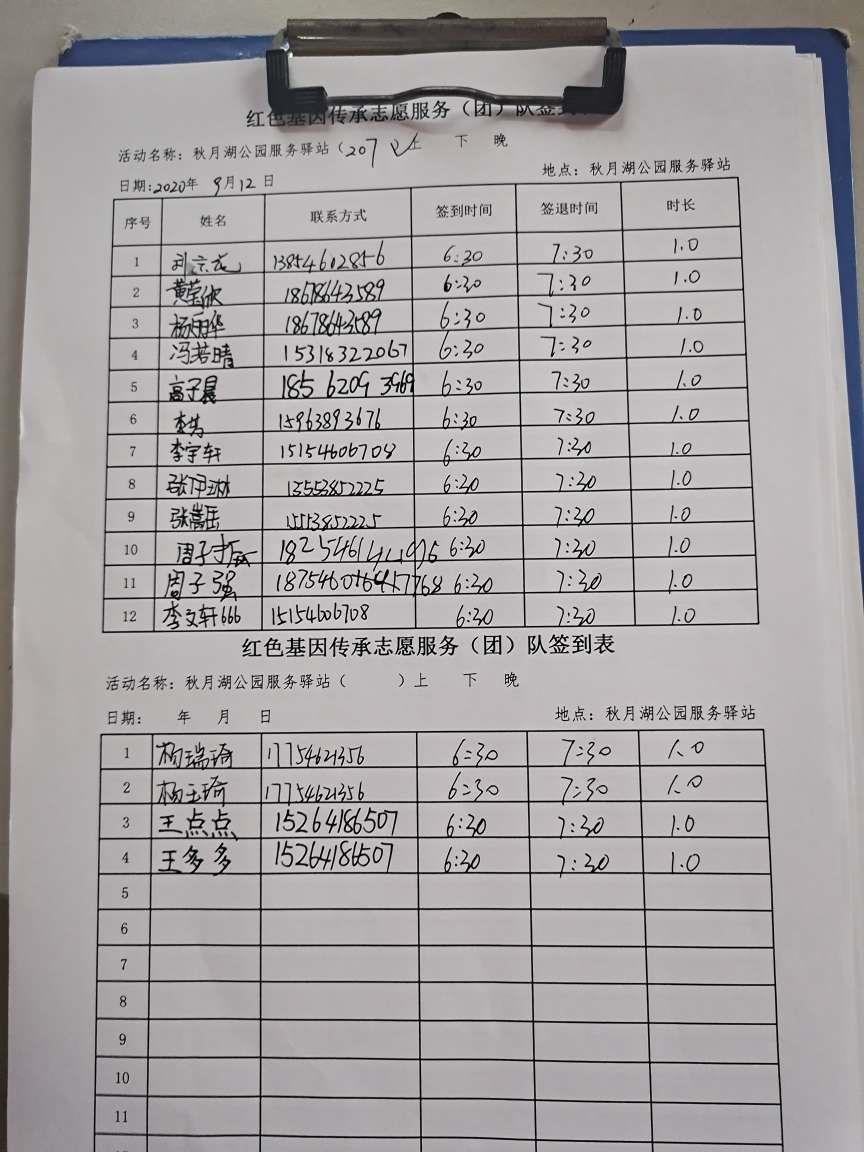 红色基因传承志愿服务（团）队签到
活动名称：秋月湖公园服务驿站（207）上 下 晚
日期：2020年 9月12日 地点：秋月湖公园服务驿站
序号 姓名 联系方式 签到时间 签退时间 时长
1 刘宗龙 13854602856 6:30 7:30 1.0
2 黄莹欣 18678643589 6:30 7:30 1.0
3 杨丽华 18678643589 6:30 7:30 1.0
4 冯若晴 15318322067 6:30 7:30 1.0
5 高子晨 185 6209 3969 6:30 7:30 1.0
6 李 15963893676 6:30 7:30 1.0
7 李宇轩 15154606708 6:30 7:30 1.0
8 张伊琳 13553852225 6:30 7:30 1.0
9 张嵩岳 6:30 7:30 1.0
10 周子 6:30 7:30 1.0
11 周子强 6:30 7:30 1.0
12 李文轩666 15154606708 6:30 7:30 1.0
红色基因传承志愿服务（团）队签到表
活动名称：秋月湖公园服务驿站（ ）上 下 晚
日期： 年 月 日 地点：秋月湖公园服务驿站
1 杨瑞琦 17754621356 6:30 7:30 1.0
2 杨玉琦 17754621356 6:30 7:30 1.0
3 王点点 15264186507 6:30 7:30 1.0
4 王多多 15264186507 6:30 7:30 1.0
5
6
7
8
9
10
11